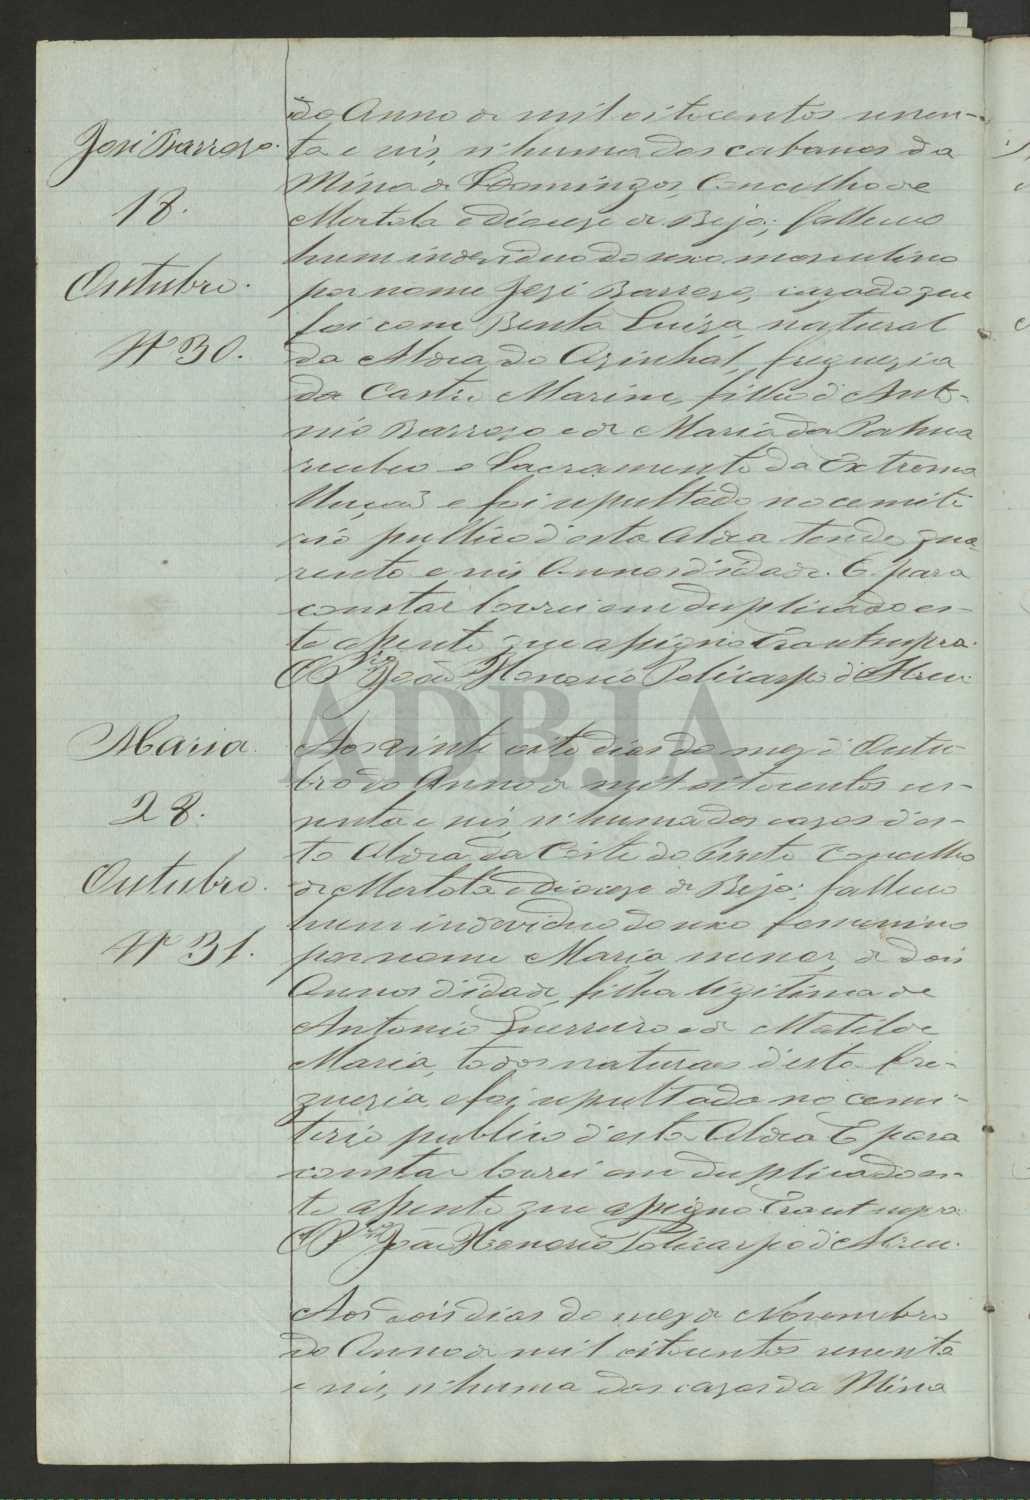 do Anno de mil oitocentos sessen-
José Barrozo.
ta e seis, n'huma das cabanas da
Mina de S. Domingos, Concelho de
18.
Mertola e Diocese de Beja; falleceo
hum individuo do sexo masculino
Outubro.
por nome José Barrozo, cazado que
foi com Benta Luiza, natural
Nº 30.
da Aldea do Azinhal, freguezia
da Castro Marim, filho d'Anto-
nio Barrozo e de Maria da Palma
recebeo o Sacramento da Extrema
Unção e foi sepultado no cemite
rio publico d'esta Aldea tendo qua-
renta e seis Annos d'idade. E para
constar lavrei em duplicado es-
te assento que assigno Era ut supra.
O Pr.or João Honorio Policarpo d'Abreu.
ADBJA
Maria.
Aos vinte oito dias do mez d'Outu-
bro do Anno de mil oitocentos ses-
28.
senta e seis, n'huma das cazas d'es-
ta Aldea da Corte do Pinto Concelho
Outubro.
de Mertola e Diocese de Beja; falleceo
hum individuo do sexo femenino
Nº 31.
por nome Maria menor de dois
Annos d'idade, filha legitima de
Antonio Guerreiro e de Matilde
Maria, todos naturaes d'esta fre-
guezia, e foi sepultada no cemi-
terio publico d'esta Aldea E para
constar lavrei em duplicado es-
te assento que assigno Era ut supra.
O Pr.or João Honorio Policarpo d'Abreu.
Aos dois dias do mez de Novembro
do Anno de mil oitocentos sessenta
e seis, n'huma das cazas da Mina